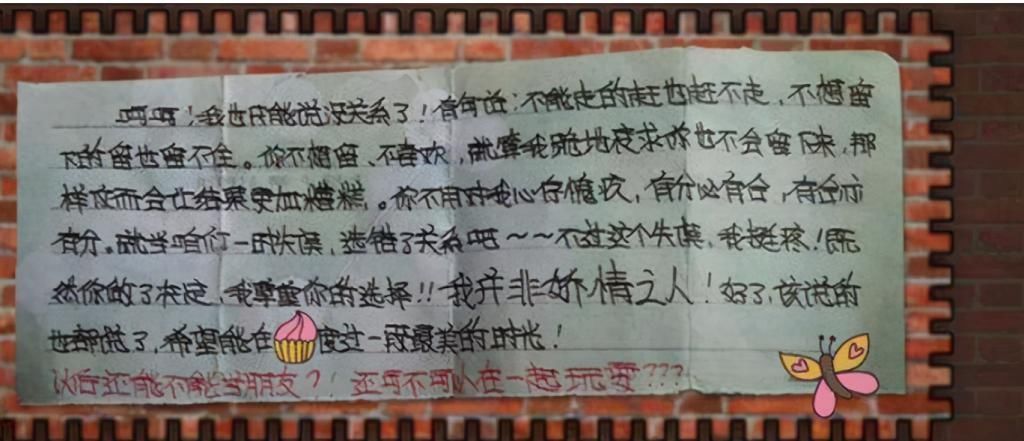 呵呵！我也只能说没关系了！有句话：不能走的赶也赶不走，不想留
下的留也留不住。你不想留、不喜欢，就算我跪地哀求你也不会留下来，那
样反而会让结果更加糟糕。你不用对我心存愧疚，有分必有合，有合亦
有分。就当咱们一时失误，选错了关系吧～～不过这个失误，我挺疼！既
然你做了决定，我尊重你的选择！！我并非矫情之人！好了，该说的
也都说了，希望能在 度过一段最美的时光！
以后还能不能当朋友？！还可不可以在一起玩耍？？？